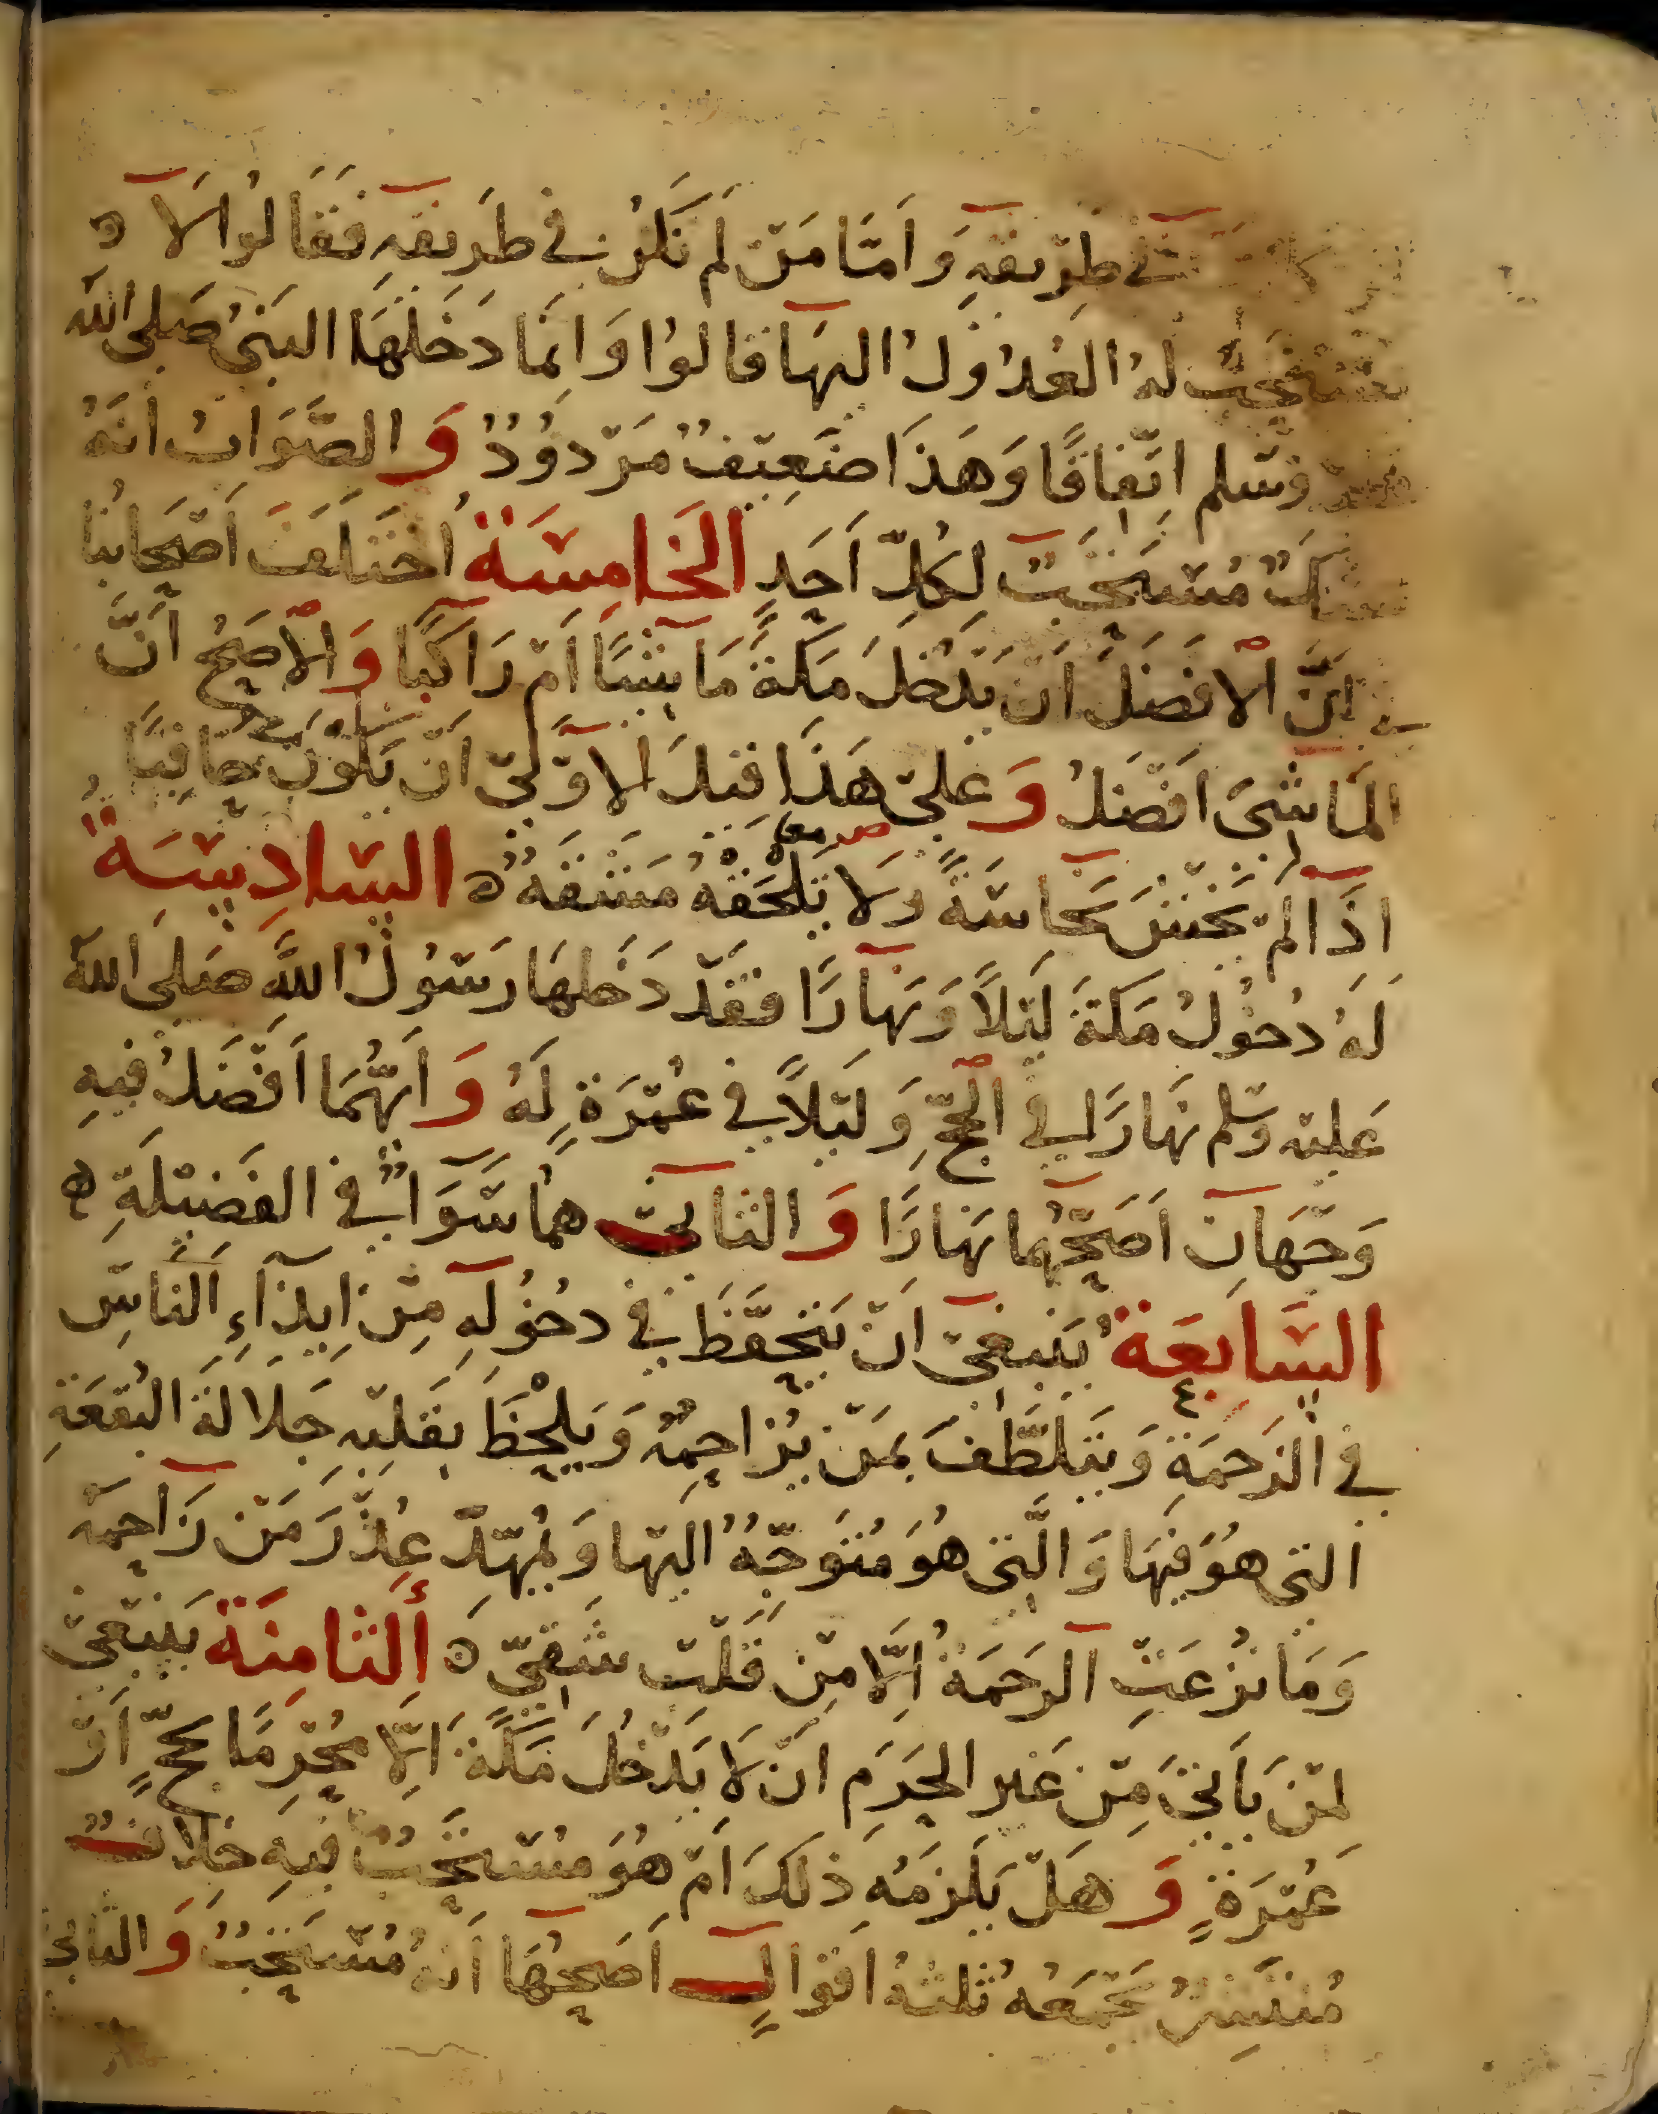 في طريقه وَاَمّا مَن لم تَكنْ في طَرِيقِهِ فَقَالوُا لَا
يستحب لهُ العُدُولُ اليهَا قالوُا وَانمَا دَخَلَهَا النبَىُ صَلى الله
وسّلم اتّفاقًا وَهَذَا ضَعِيفٌ مَرْدوُدٌ وَالصَّوَابُ انَهُ
مُسْتَحَبّ لِكُلّ اَحَدٍ الخَامِسَة اُختَلَفَ اَصْحَابُنا
في انّ الْافضَلَ اَن يَدْخُلَ مَكةَ مَاشِيًا اَمْ رَاكبًا وَالْاصَحُ اَنَّ
المَاشِىَ اَفْضَلُ وَعَلىَ هَذَا قيلَ الاوْلىَ اَنْ يَكوُنَ حَافِيًا
اذَا لم يخَش نَجاسَةً وَلَا تَلْحَقْهُ مَشقهٌ السَادِسَةُ
لَهُ دُخُولُ مَكةَ لَيْلاً وَنهَارًا فقَدْ دَخَلهَا رَسُولُ اللهِ صَلى الله
عَليْه وسَلم نهَارًا في الْحَجّ وَليْلاً في عُمْرَةٍ لَهُ وَاَيهُّمَا اَفْضَلُ فيهِ
وَجْهَانِ اَصَحّهُما نهَارًا وَالثانىْ هُما سَّوَاءٌ في الفَضيْلَةِ
السَّابِعَةُ يَنبغىْ اَنْ يَتَحَفَّظَ في دخُولهِ مِنْ اِيذَاءِ الناسِّ
في الزَحمَةِ وَيتَلَطَّفَ بمَنْ يُزَاحِمُهُ وَيَلْحَظَ بقَلبْهِ جَلَالَةَ البُقعَةِ
التى هوَُ فيهَا وَالَّتى هُوَ مُتوَجّهٌ اليْها وَيمُهّدْ عُذْرَ مَنْ زَاحمَهُ
وَمَا نُزعَتِ الرحمَةُ اِلَّا مِنْ قَلْبِ شَقِيّ اَلثامِنَة يَنبَغىْ
لمَنْ يَأتىَ مِنْ غَيرِ الحَرَمِ اَنْ لَا يَدْخُلَ مَكّةَ اِلَّا مُحْرِمًا بحَجٍّ اَوْ
عُمْرَةٍ وَهَلْ يَلزَمُهُ ذَلكَ اَمْ هُوَ مُسْتَحَبٌّ فيهِ خلافٌ
مُنتَشِرٌ يَجْمَعُهُ ثلثهُ اقوَالٍ اَصَحهُّا اَنهُ مُسْتَحَبٌّ وَالثانى